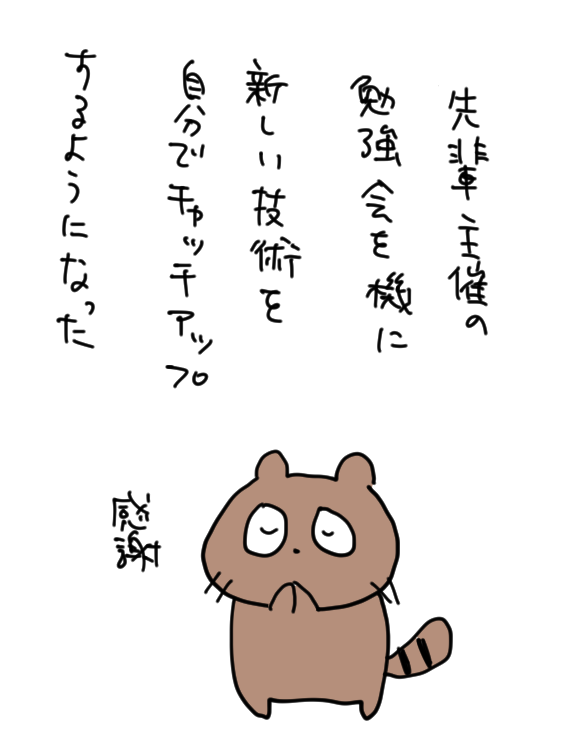 先輩主催の
勉強会を機に
新しい技術を
自分でチャッチアップ
するようになった
感謝